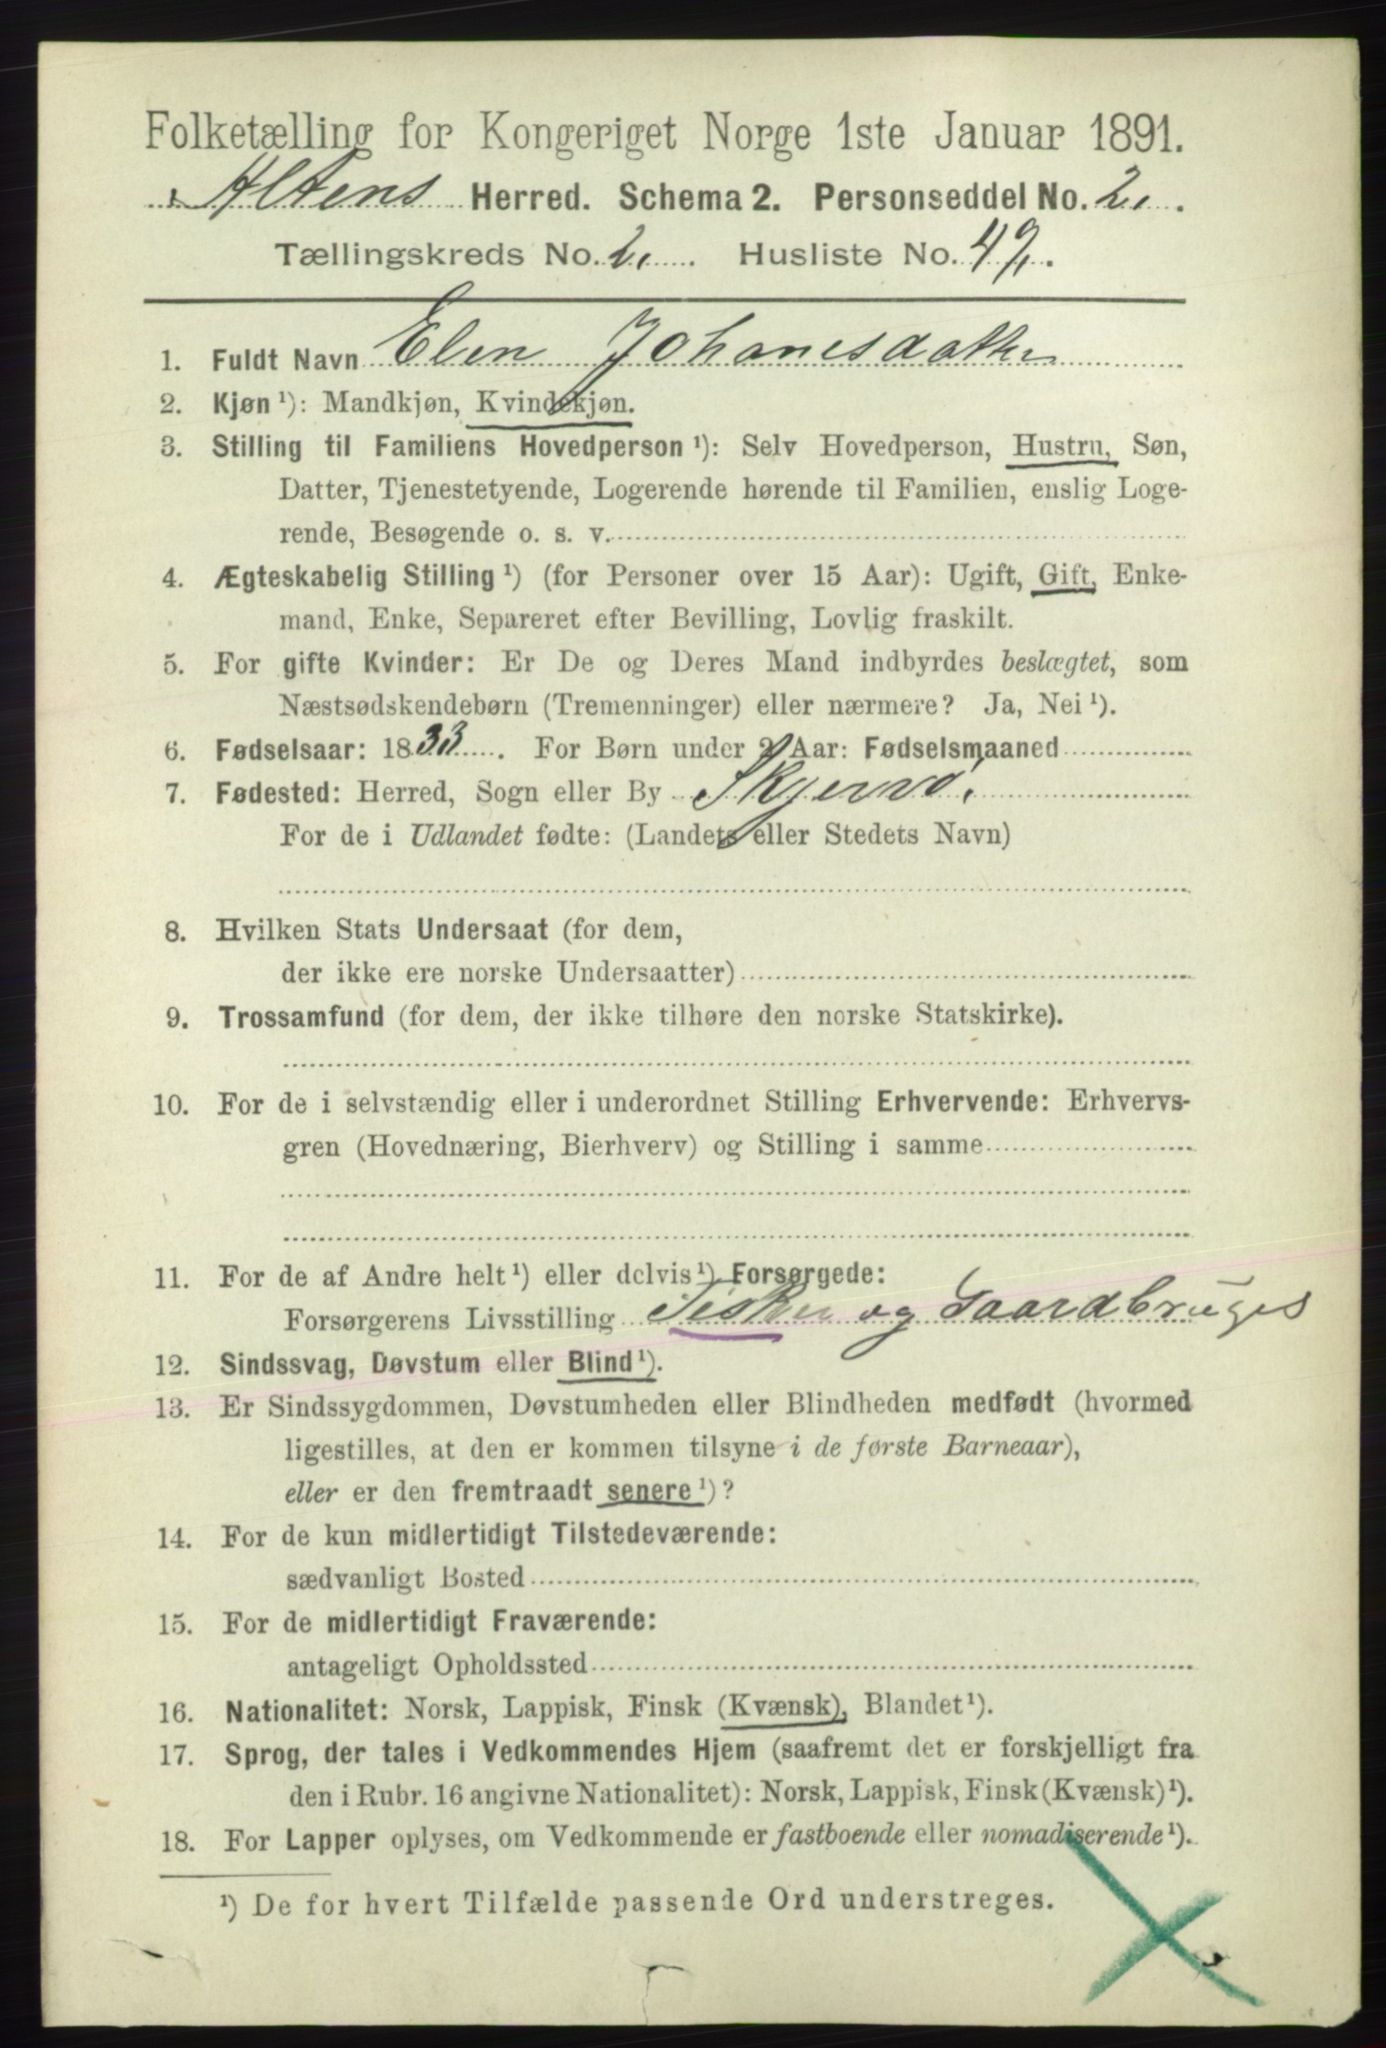 Folketælling for Kongeriget Norge 1ste Januar 1891.
Altens Herred. Schema 2. Personseddel No. 2.
Tællingskreds No. 2. Husliste No. 42.
1. Fuldt Navn Elen Johanesdatter
2. Kjøn ¹): Mandkjøn, Kvindekjøn.
3. Stilling til Familiens Hovedperson ¹): Selv Hovedperson, Hustru, Søn,
Datter, Tjenestetyende, Logerende hørende til Familien, enslig Loge-
rende, Besøgende o. s. v.
4. Ægteskabelig Stilling ¹) (for Personer over 15 Aar): Ugift, Gift, Enke-
mand, Enke, Separeret efter Bevilling, Lovlig fraskilt.
5. For gifte Kvinder: Er De og Deres Mand indbyrdes beslægtet, som
Næstsødskendebørn (Tremenninger) eller nærmere? Ja, Nei ¹).
6. Fødselsaar: 1833. For Børn under 2 Aar: Fødselsmaaned
7. Fødested: Herred, Sogn eller By Skjervø.
For de i Udlandet fødte: (Landets eller Stedets Navn)
8. Hvilken Stats Undersaat (for dem,
der ikke ere norske Undersaatter)
9. Trossamfund (for dem, der ikke tilhøre den norske Statskirke).
10. For de i selvstændig eller i underordnet Stilling Erhvervende: Erhvervs-
gren (Hovednæring, Bierhverv) og Stilling i samme
11. For de af Andre helt ¹) eller delvis ¹) Forsørgede:
Forsørgerens Livsstilling Fisker og Gaardbruges
12. Sindssvag, Døvstum eller Blind ¹).
13. Er Sindssygdommen, Døvstumheden eller Blindheden medfødt (hvormed
ligestilles, at den er kommen tilsyne i de første Barneaar),
eller er den fremtraadt senere ¹)?
14. For de kun midlertidigt Tilstedeværende:
sædvanligt Bosted
15. For de midlertidigt Fraværende:
antageligt Opholdssted
16. Nationalitet: Norsk, Lappisk, Finsk (Kvænsk), Blandet ¹).
17. Sprog, der tales i Vedkommendes Hjem (saafremt det er forskjelligt fra
den i Rubr. 16 angivne Nationalitet): Norsk, Lappisk, Finsk (Kvænsk) ¹).
18. For Lapper oplyses, om Vedkommende er fastboende eller nomadiserende ¹).
¹) De for hvert Tilfælde passende Ord understreges.